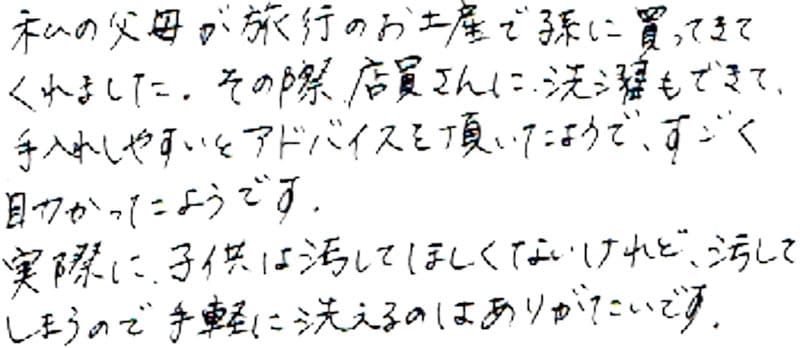 私の父母が旅行のお土産で孫に買ってきて
くれました。その際、店員さんに、洗濯もできて、
手入れしやすいとアドバイスを頂いたようで、すごく
助かったようです。
実際に、子供は汚してほしくないけれど、汚して
しまうので手軽に洗えるのはありがたいです。